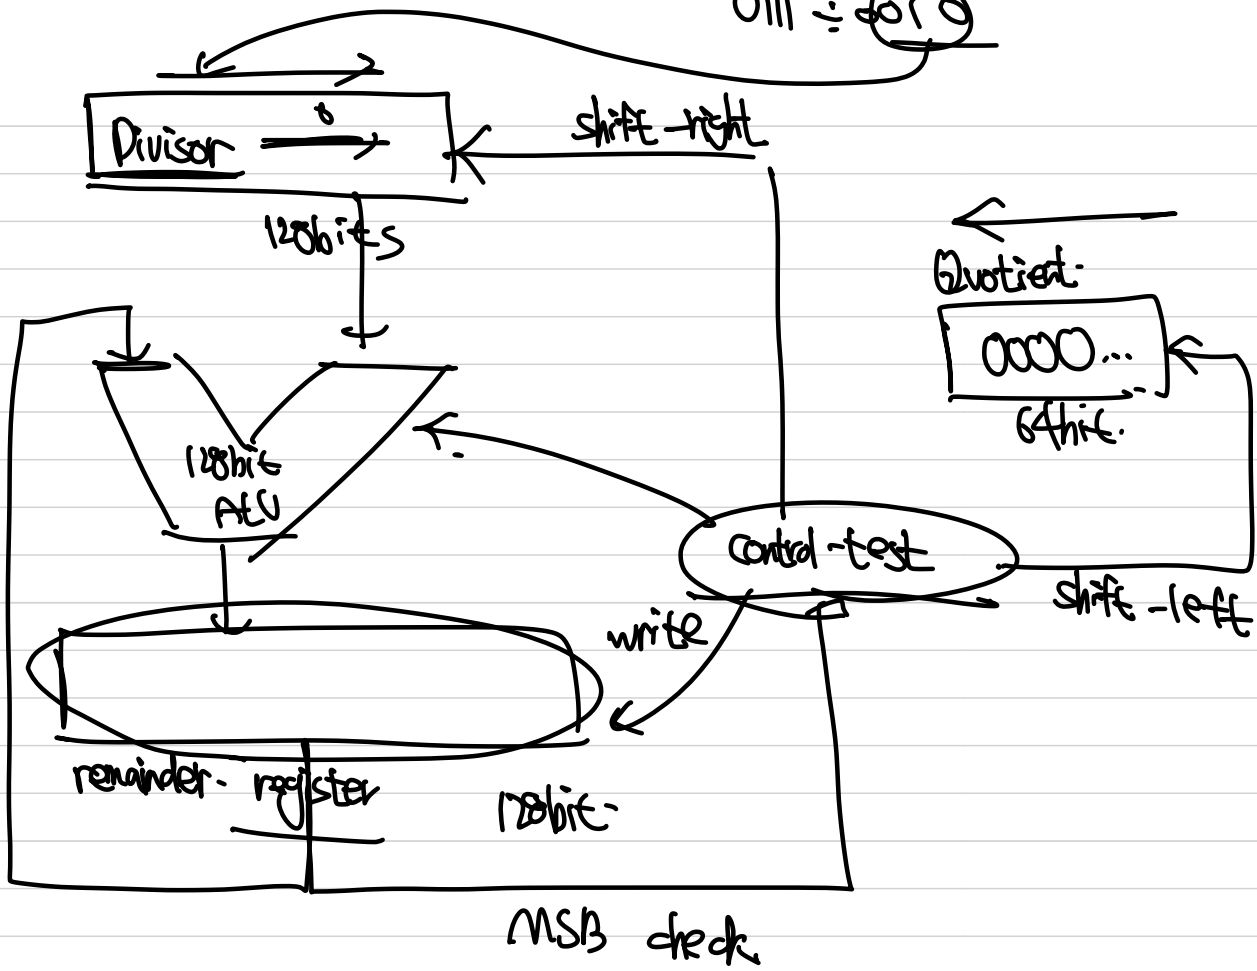 shift-right
Divisor
128bits
Quotient.
0000...
64bit.
128bit
ALU
control-test
shift-left
write
remainder. register
128bit.
MSB check